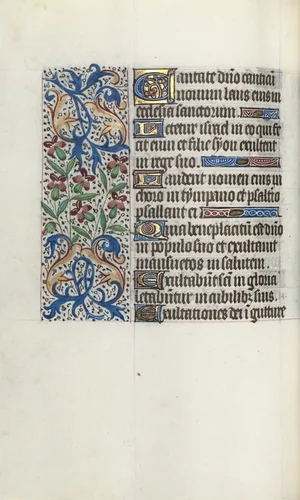 Cantate dño canticũ
nouum laus eius in
ecclesia sanctorum.
Letetur israel in eo qui fec
it eum et filie syon exultent
in rege suo.
Laudent nomen eius in
choro in tympano et psaltio
psallant ei
Quia bene placitũ est dño
in populo suo et exultauit
mansuetos in salutem.
Exultabũt sc̃i in gloria
letabũtur in cubilib; suis.
Exultationes dei ĩ gutture